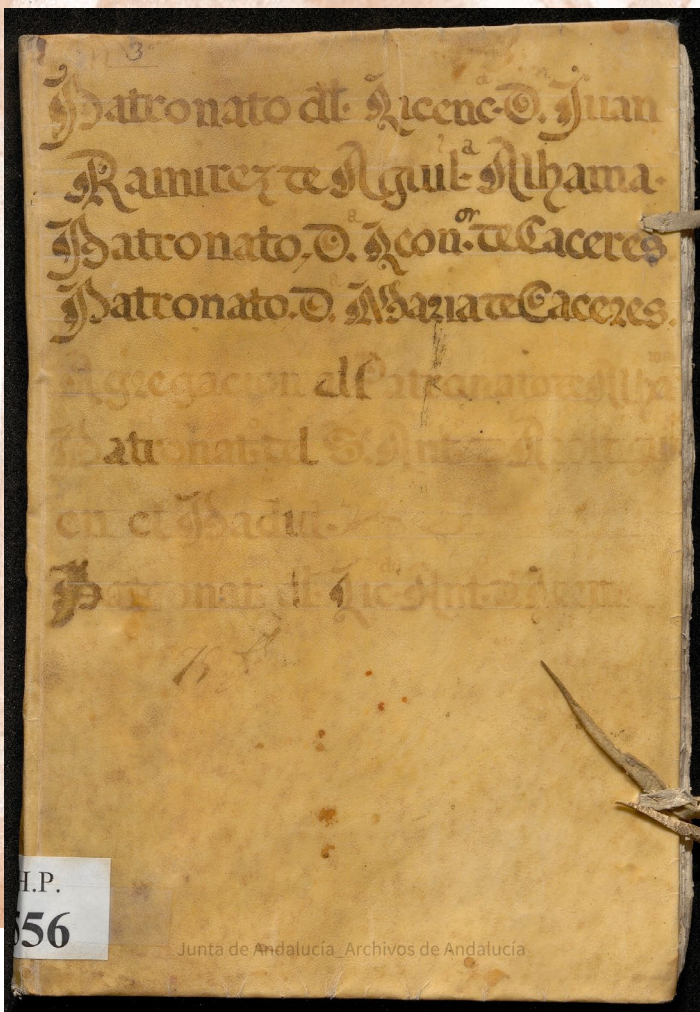 3
Patronato dl. Licenc.do D. Juan
Ramirez de Aguil.a Alhama.
Patronato, D.a Leon.or de Caceres
Patronato. D. Maria de Caceres.
Agregacion dl Patronato de Alha
Patronat. del
en el Padul.
Patronat. dl. Lic.do Ant.
H.P.
556
Junta de Andalucía_Archivos de Andalucía